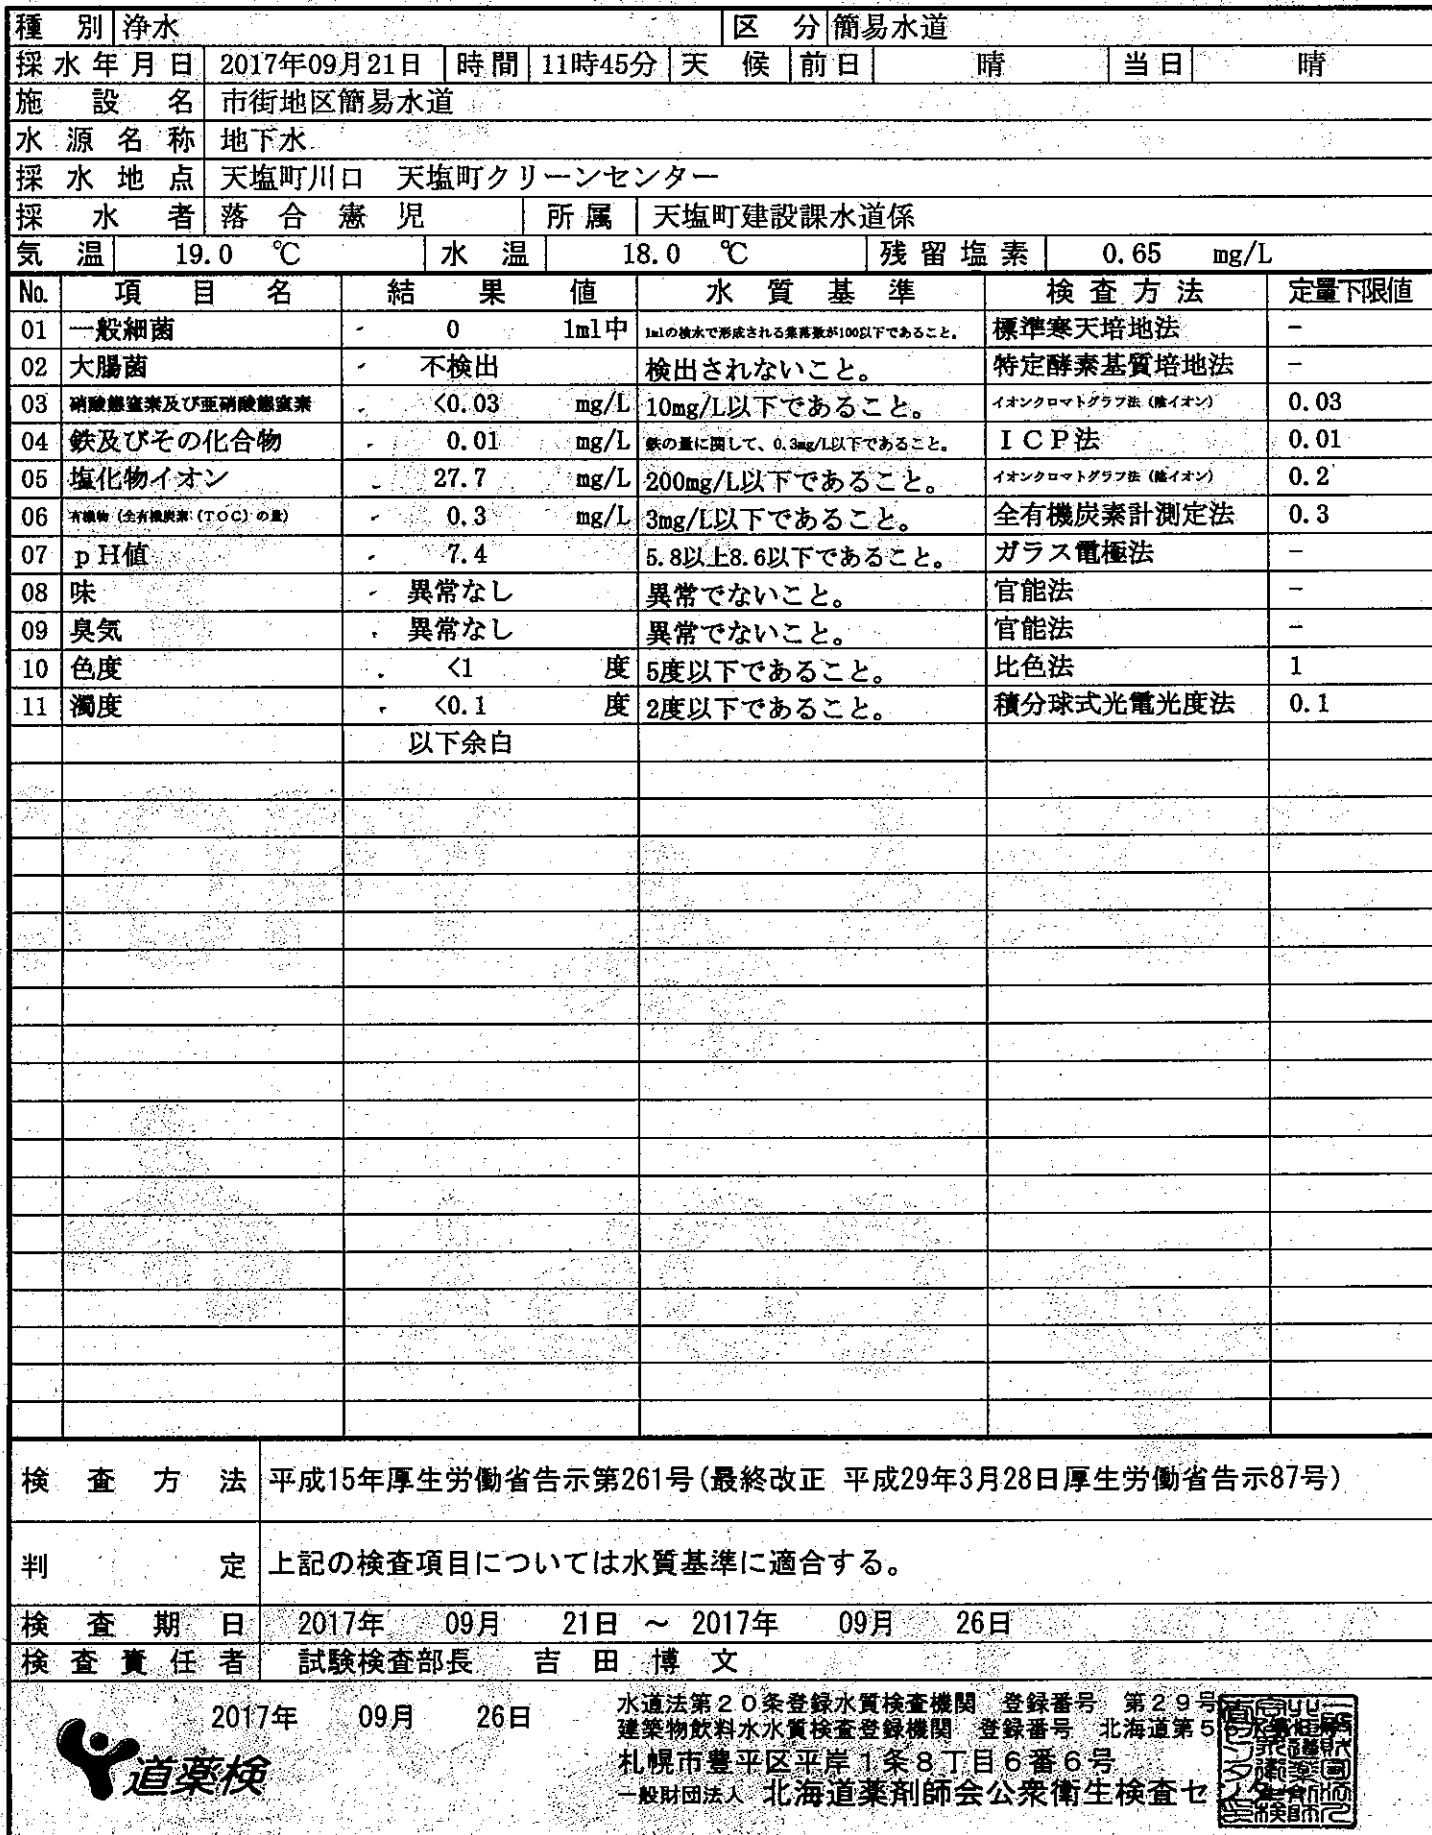 種 別 浄水 区 分 簡易水道
採水年月日 2017年09月21日 時間 11時45分 天 候 前日 晴 当日 晴
施 設 名 市街地区簡易水道
水源名称 地下水
採水地点 天塩町川口 天塩町クリーンセンター
採 水 者 落 合 憲 児 所属 天塩町建設課水道係
気 温 19.0 ℃ 水 温 18.0 ℃ 残留塩素 0.65 mg/L
No. 項 目 名 結 果 値 水 質 基 準 検 査 方 法 定量下限値
01 一般細菌 0 1ml中 1mlの検水で形成される集落数が100以下であること。 標準寒天培地法 -
02 大腸菌 不検出 検出されないこと。 特定酵素基質培地法 -
03 硝酸態窒素及び亜硝酸態窒素 <0.03 mg/L 10mg/L以下であること。 イオンクロマトグラフ法（陰イオン） 0.03
04 鉄及びその化合物 0.01 mg/L 鉄の量に関して、0.3mg/L以下であること。 ＩＣＰ法 0.01
05 塩化物イオン 27.7 mg/L 200mg/L以下であること。 イオンクロマトグラフ法（陰イオン） 0.2
06 有機物（全有機炭素（TOC）の量） 0.3 mg/L 3mg/L以下であること。 全有機炭素計測定法 0.3
07 pH値 7.4 5.8以上8.6以下であること。 ガラス電極法 -
08 味 異常なし 異常でないこと。 官能法 -
09 臭気 異常なし 異常でないこと。 官能法 -
10 色度 <1 度 5度以下であること。 比色法 1
11 濁度 <0.1 度 2度以下であること。 積分球式光電光度法 0.1
以下余白
検 査 方 法 平成15年厚生労働省告示第261号(最終改正 平成29年3月28日厚生労働省告示87号)
判 定 上記の検査項目については水質基準に適合する。
検 査 期 日 2017年 09月 21日 ～ 2017年 09月 26日
検査責任者 試験検査部長 吉 田 博 文
2017年 09月 26日
道薬検
水道法第２０条登録水質検査機関 登録番号 第２９号
建築物飲料水水質検査登録機関 登録番号 北海道第５
札幌市豊平区平岸１条８丁目６番６号
一般財団法人 北海道薬剤師会公衆衛生検査セ